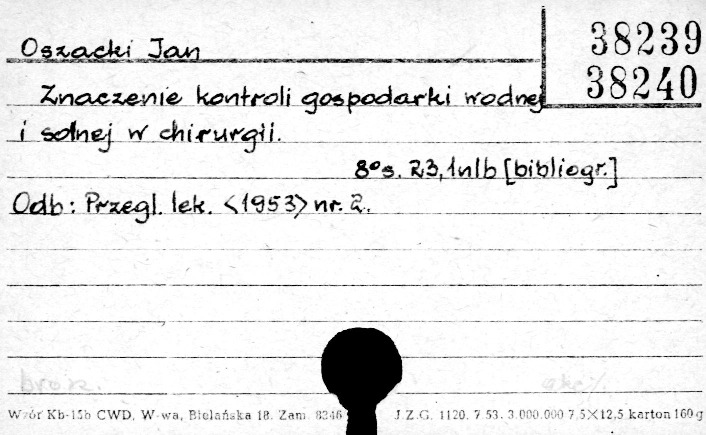 38239
Oszacki Jan
38240
Znaczenie kontroli gospodarki wodnej
i solnej w chirurgii.
8° s. 23, 1 nlb [bibliogr.]
Odb: Przegl. lek. <1953> nr. 2.
brosz.
Wzór Kb-15b CWD, W-wa, Bielańska 18. Zam. 8346 J.Z.G. 1120. 7.53. 3.000.000 7,5×12,5 karton 160 g